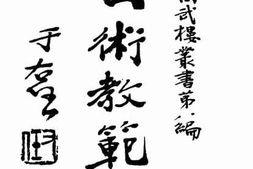 武樓叢書第一編
術教範
于右任